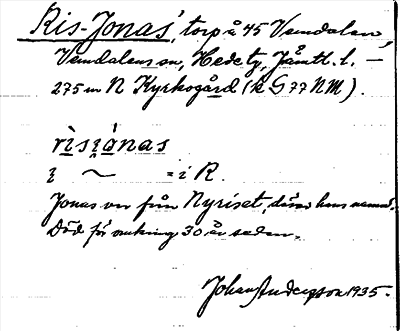 Ris-Jonas', torp å 45 Vemdalen,
Vemdalens sn, Hede tg, Jämtl. l. —
275 m N Kyrkogård (k G 77 NM).
rìsi̯ònas
i ~ = i R.
Jonas var från Nyriset, därav hans namn.
Död för omkring 30 år sedan.
Johan Andersson 1935.